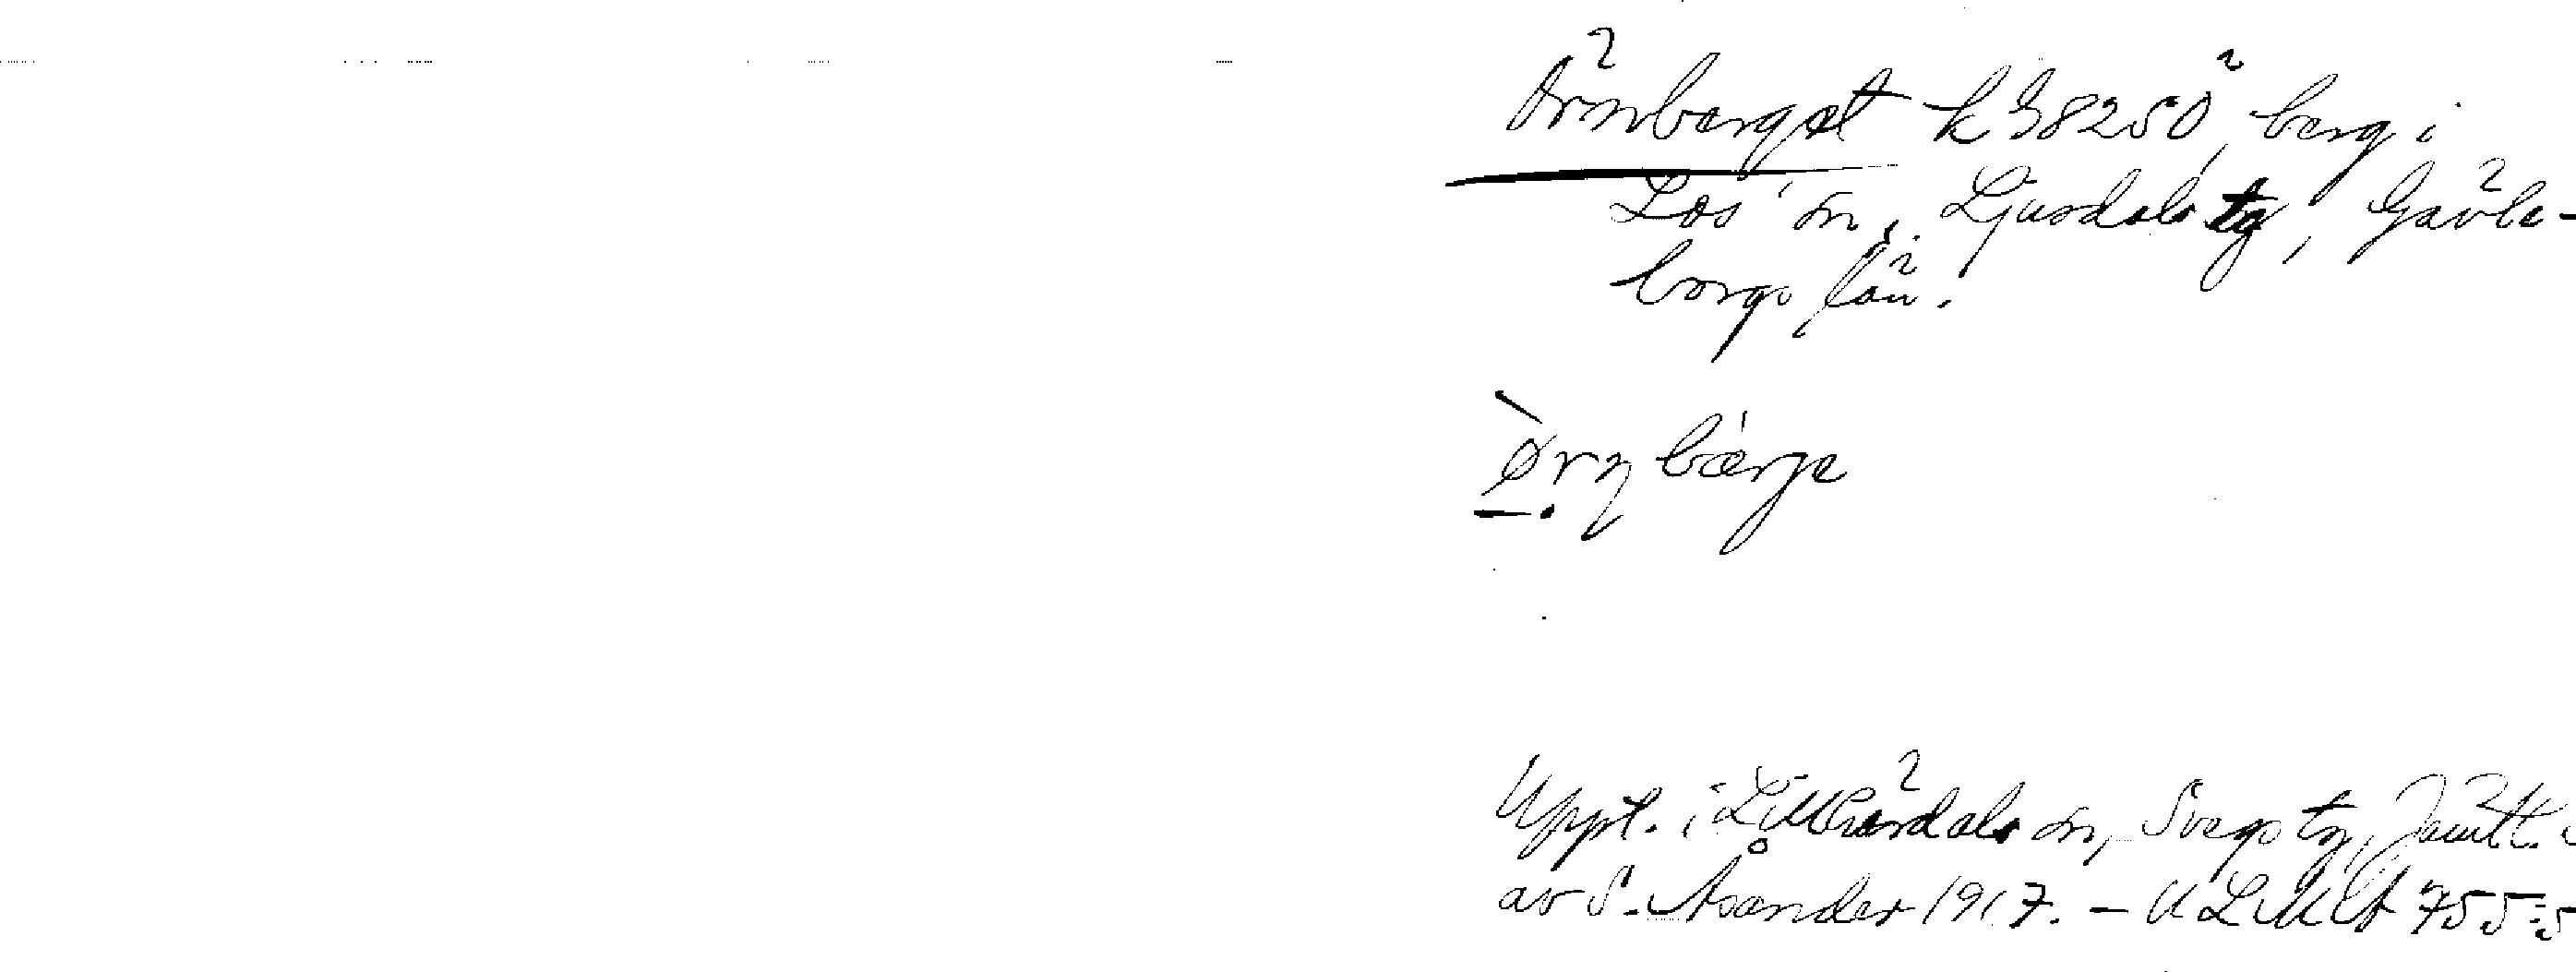 Örnberget k 38250, berg i
Los sn, Ljusdals tg, Gävle-
borgs län.
ørn bærje
Uppt. i Lillhärdals sn, Svegs tg, Jämtl.
av S. Åsander 1917. – ULMA 755:5